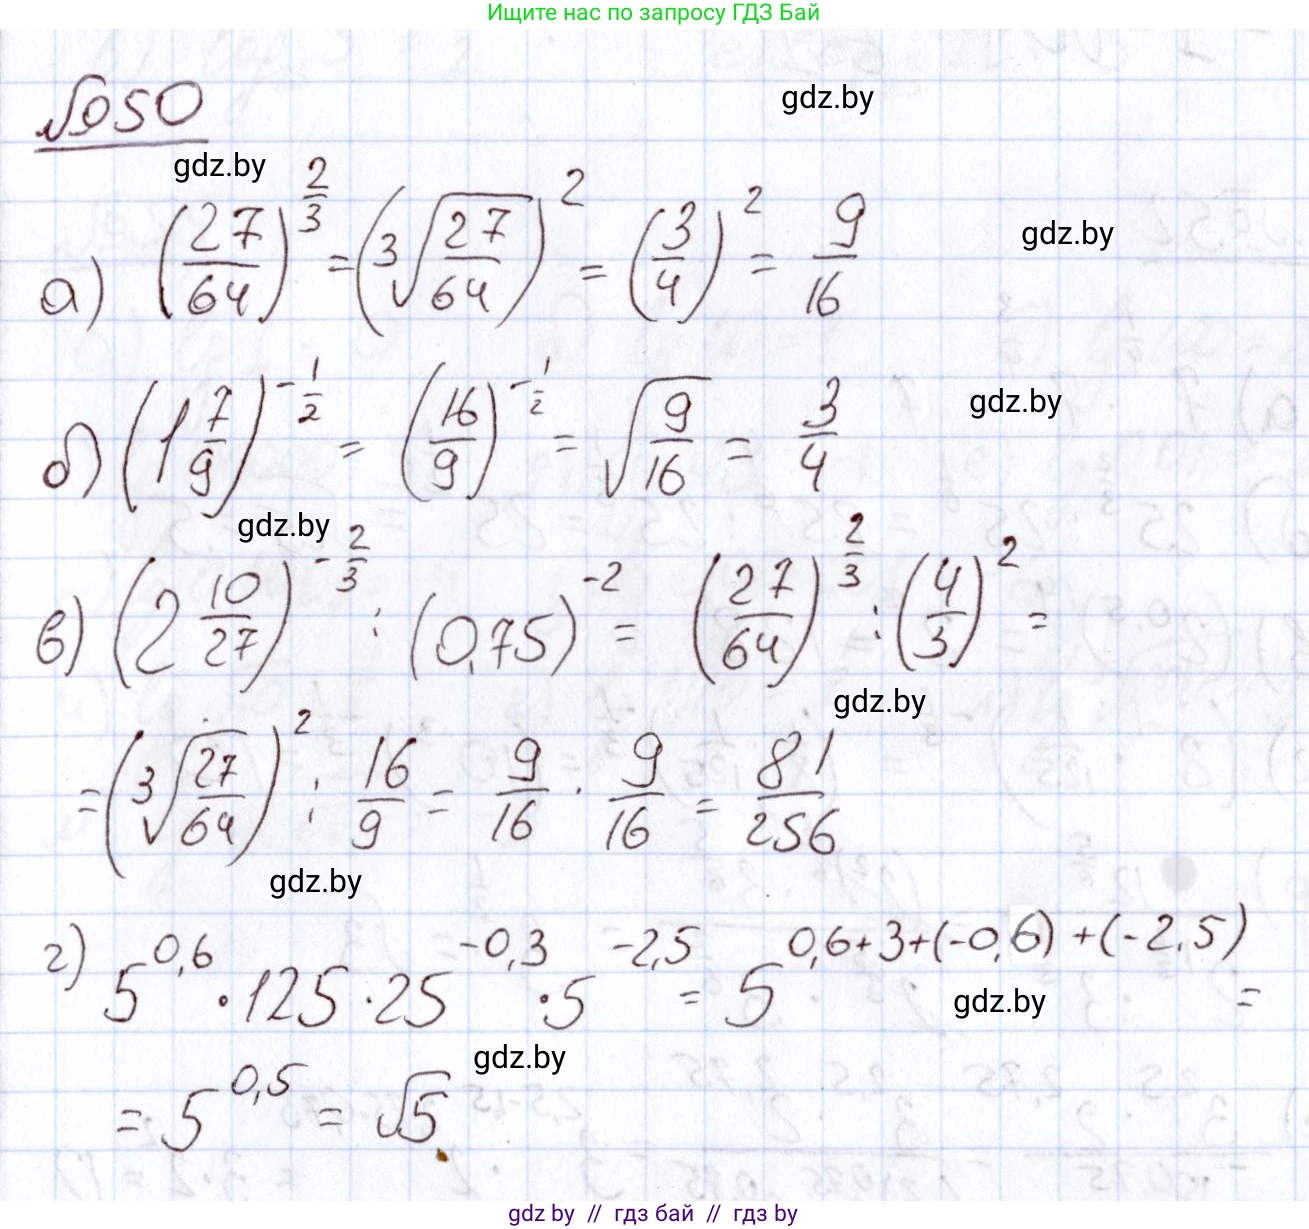 Ищите нас по запросу ГДЗ Бай
№950
gdz.by
gdz.by
а) (27/64)^(2/3) = (∛(27/64))^2 = (3/4)^2 = 9/16
gdz.by
б) (1 7/9)^(-1/2) = (16/9)^(-1/2) = √(9/16) = 3/4
gdz.by
gdz.by
в) (2 10/27)^(-2/3) : (0,75)^(-2) = (27/64)^(2/3) : (4/3)^2 =
gdz.by
= (∛(27/64))^2 : 16/9 = 9/16 · 9/16 = 81/256
gdz.by
г) 5^(0,6) · 125 · 25^(-0,3) · 5^(-2,5) = 5^(0,6+3+(-0,6)+(-2,5)) =
gdz.by
gdz.by
= 5^(0,5) = √5
gdz by // гдз бай // гдз by